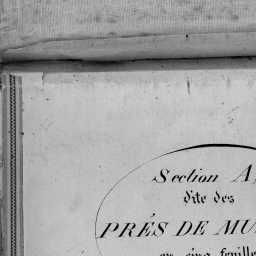 Section A
dite des
PRÉS DE MU
en cinq feuille